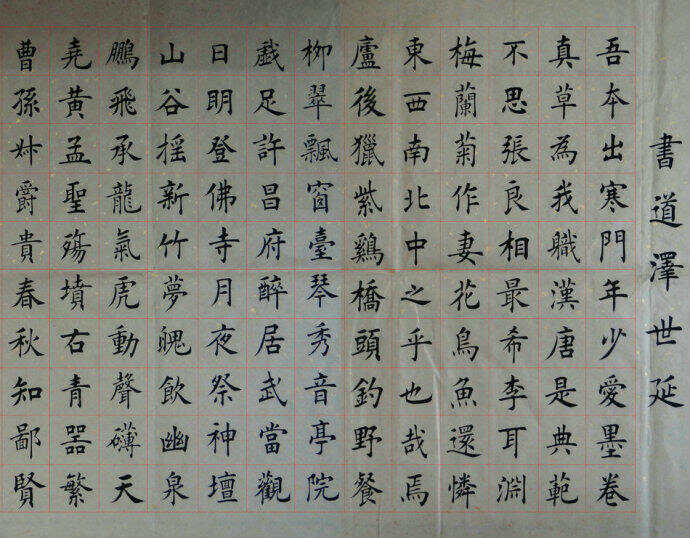 書道澤世延
吾本出寒門年少愛墨卷
真草為我職漢唐是典範
不思張良相最希李耳淵
梅蘭菊作妻花鳥魚還憐
東西南北中之乎也哉焉
廬後獵紫鷄橋頭釣野餐
柳翠飄窗臺琴秀音亭院
戲足許昌府醉居武當觀
日明登佛寺月夜祭神壇
山谷摇新竹夢魄飲幽泉
鵬飛承龍氣虎動聲礴天
堯黃孟聖殤墳右青器繁
曹孫姊爵貴春秋知鄙賢